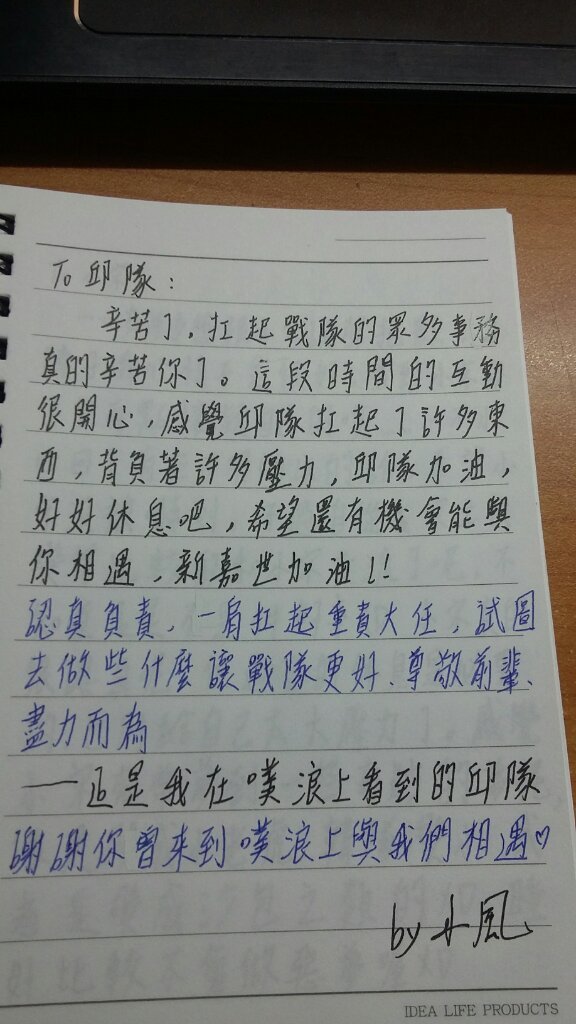 To 邱隊：
辛苦了，扛起戰隊的眾多事務
真的辛苦你了。這段時間的互動
很開心，感覺邱隊扛起了許多東
西，背負著許多壓力，邱隊加油，
好好休息吧，希望還有機會能與
你相遇，新嘉世加油!!
認真負責、一肩扛起重責大任、試圖
去做些什麼讓戰隊更好、尊敬前輩、
盡力而為
——這是我在噗浪上看到的邱隊
謝謝你曾來到噗浪上與我們相遇♡
by 小風
IDEA LIFE PRODUCTS